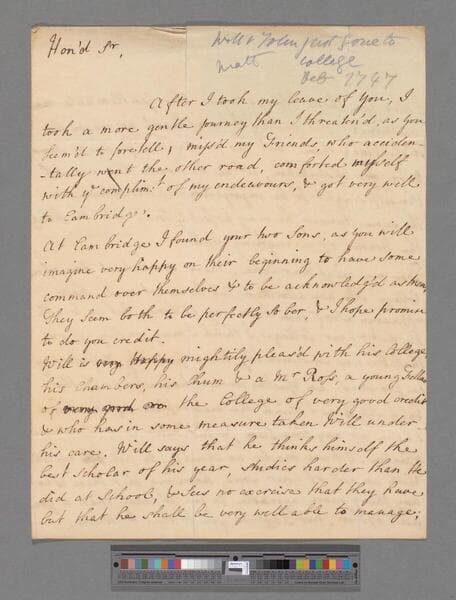 Hon'd Sr,
Will & John just gone to
Matt college
Feb 1747
After I took my leave of You, I
took a more gentle journey than I threaten'd, as you
seem'd to foretell; miss'd my Friends, who acciden-
-tally went the other road, comforted myself
with yr complimt of my endeavours, & got very well
to Cambridge.
At Cambridge I found your two Sons, as you will
imagine very happy on their beginning to have some
command over themselves & to be acknowledg'd as men,
They seem both to be perfectly sober, & I hope promise
to do you credit.
Will is very Happy mightily pleas'd with his College,
his Chambers, his Chum & a Mr Ross, a young Fellow
of very good the College of very good credit
& who has in some measure taken Will under
his care. Will says that he thinks himself the
best scholar of his year, studies harder than He
did at School, & sees no exercise that they have
but that he shall be very well able to manage;